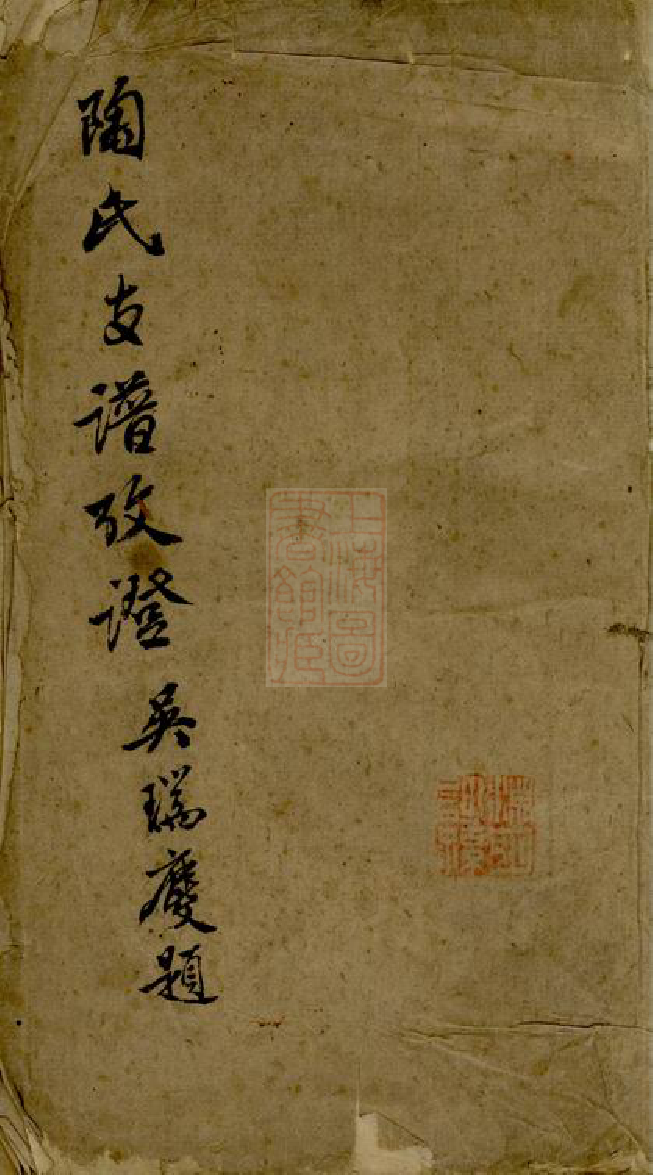 陶氏支譜攷證
吳瑞慶題
上海圖
書館